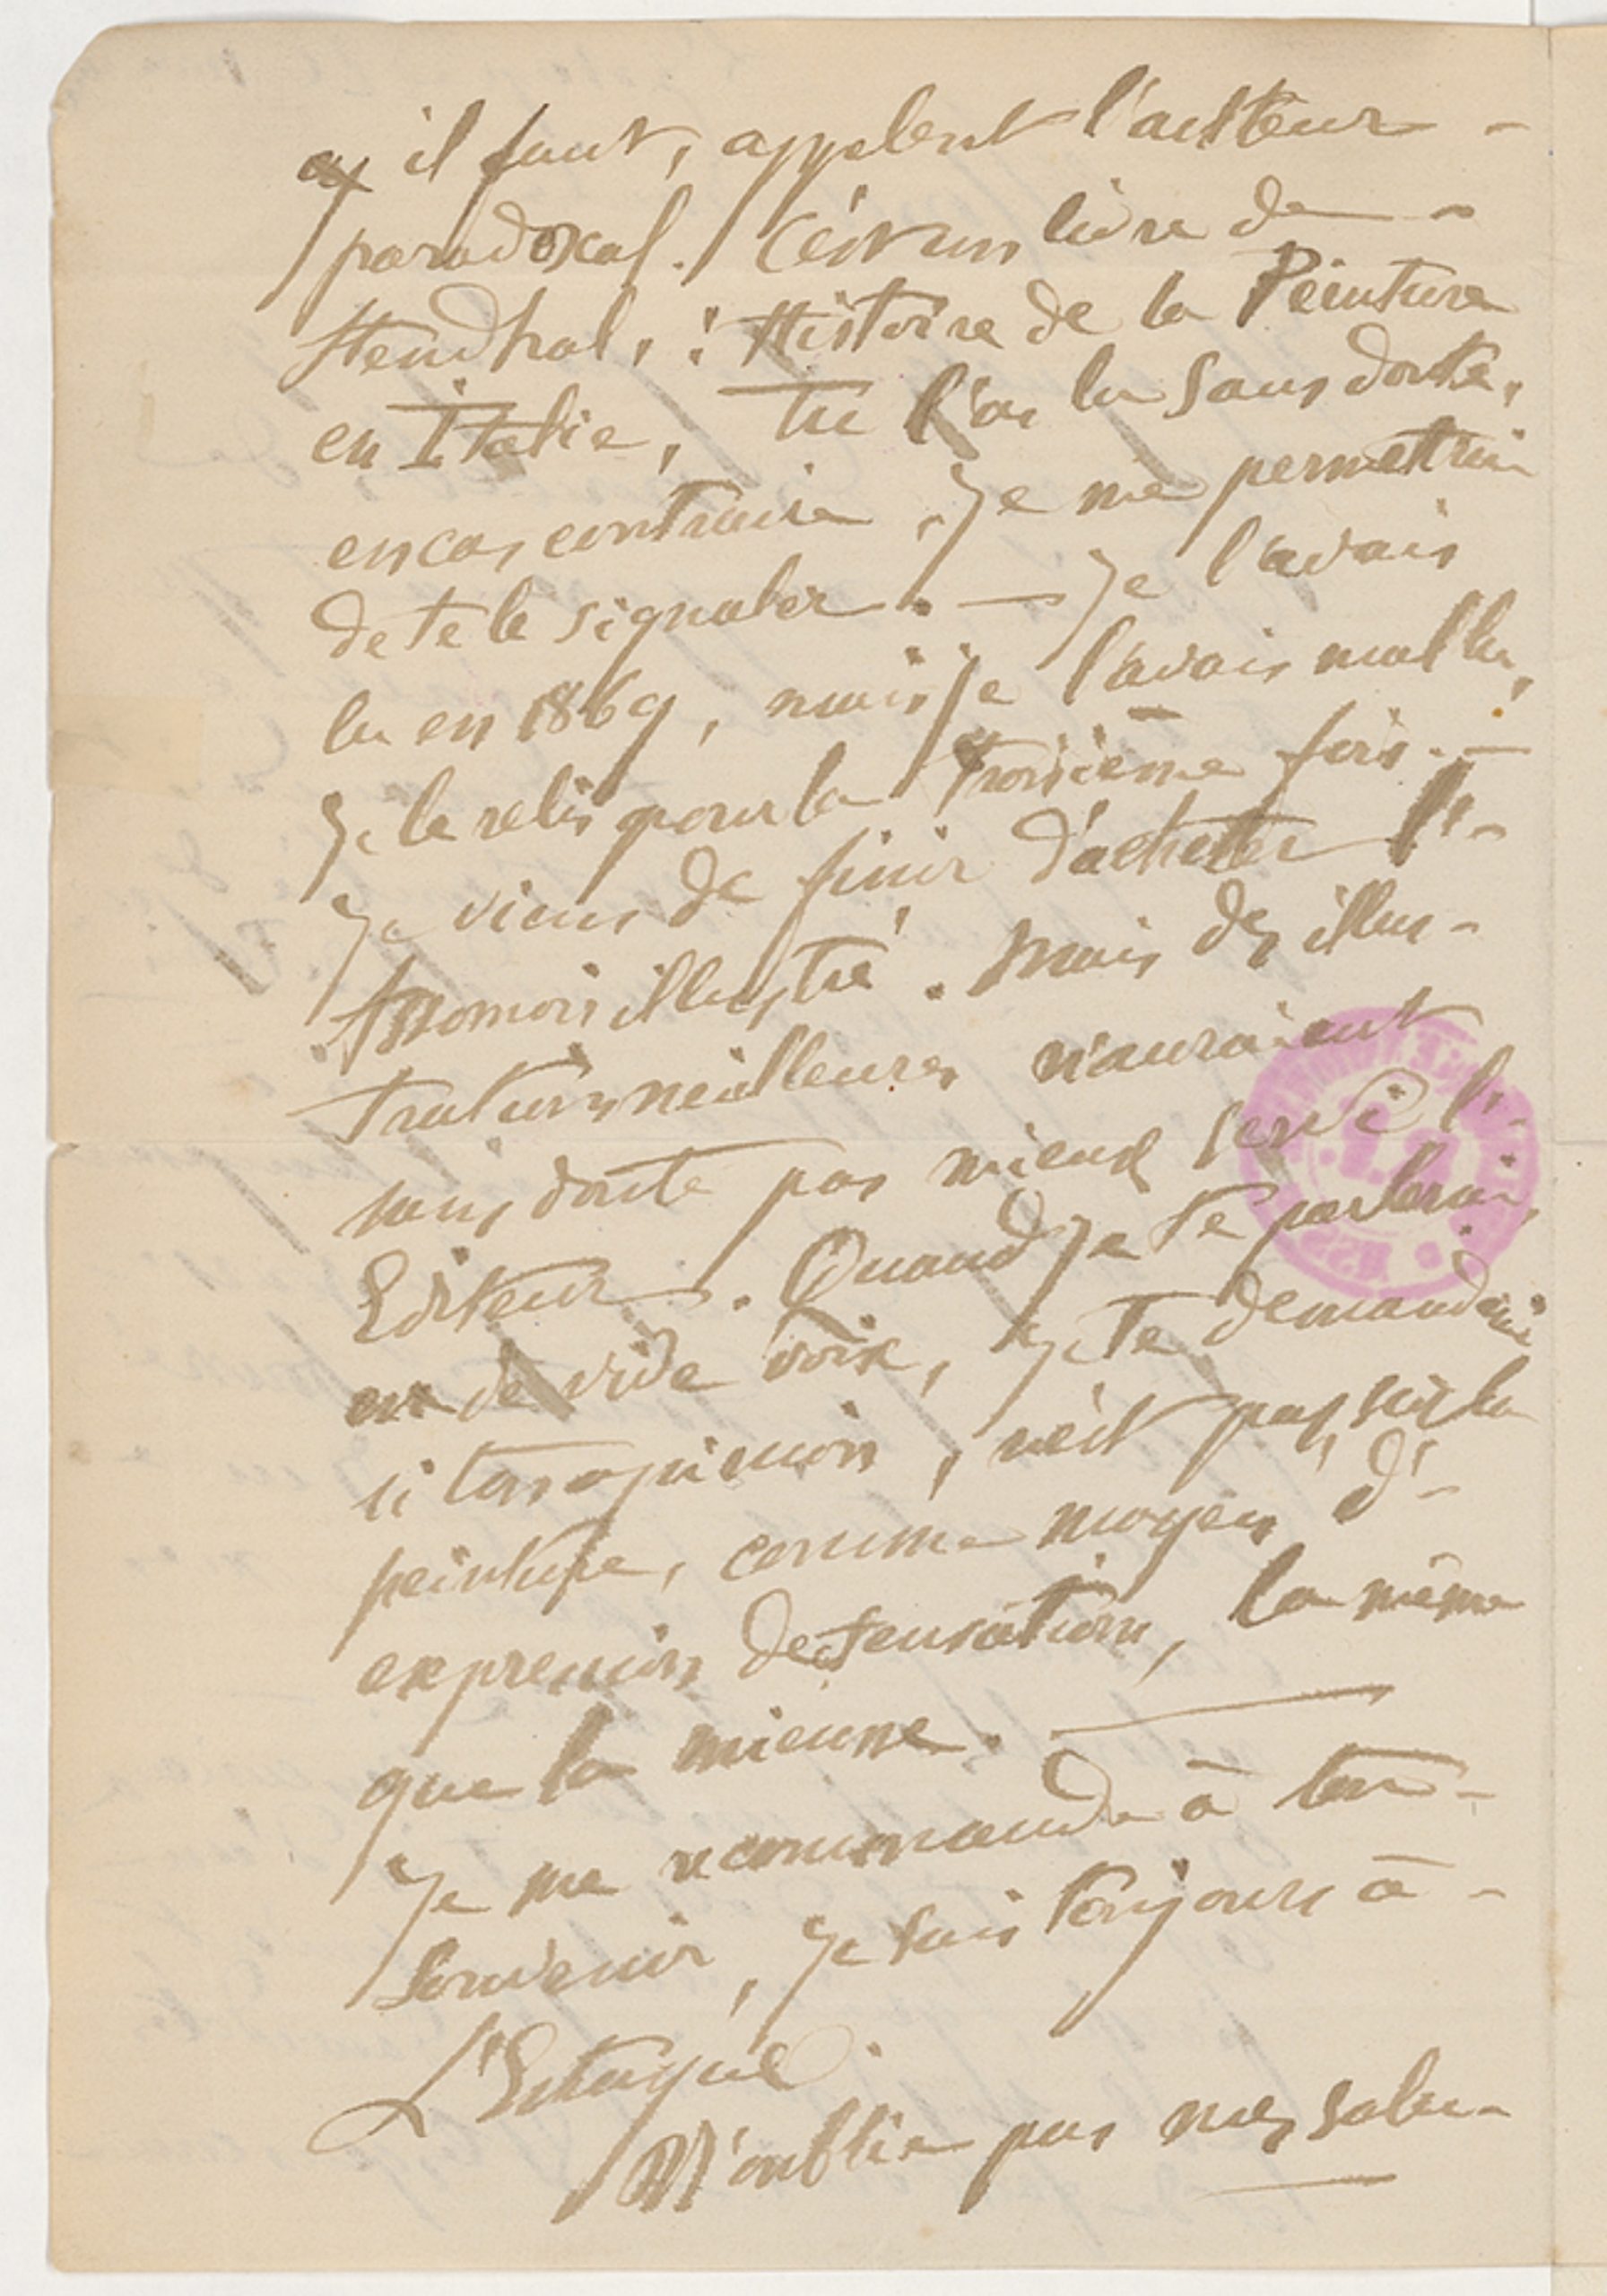 il faut, applent l'auteur -
paradoxal. C'est un livre de -
Stendhal, : Histoire de la Peinture
en Italie, tu l'as lu sans doute,
en cas contraire, je me permettrai
de te le signaler. — Je l'avais
lu en 1869, mais je l'avais mal lu,
Je le relis pour la troisième fois. —
Je viens de finir d'acheter l'-
Assomoir illustré. Mais des illus-
trations meilleures n'auraient
sans doute pas mieux servi l'-
Editeur. Quand je te parlerai,
de vive voix, je te demanderai
si ton opinion, n'est pas, sur la
peinture, comme moyen d'-
expression de sensation, la même
que la mienne. —
Je me recommande à ton -
souvenir, je suis toujours à -
L'Estaque.
N'oublie pas mes salu-